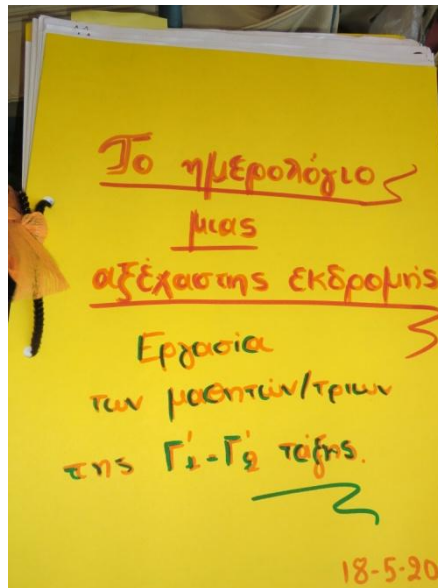 Το ημερολόγιο
μιας
αξέχαστης εκδρομής
Εργασία
των μαθητών/τριων
της Γ'1-Γ'2 τάξης.
18-5-20